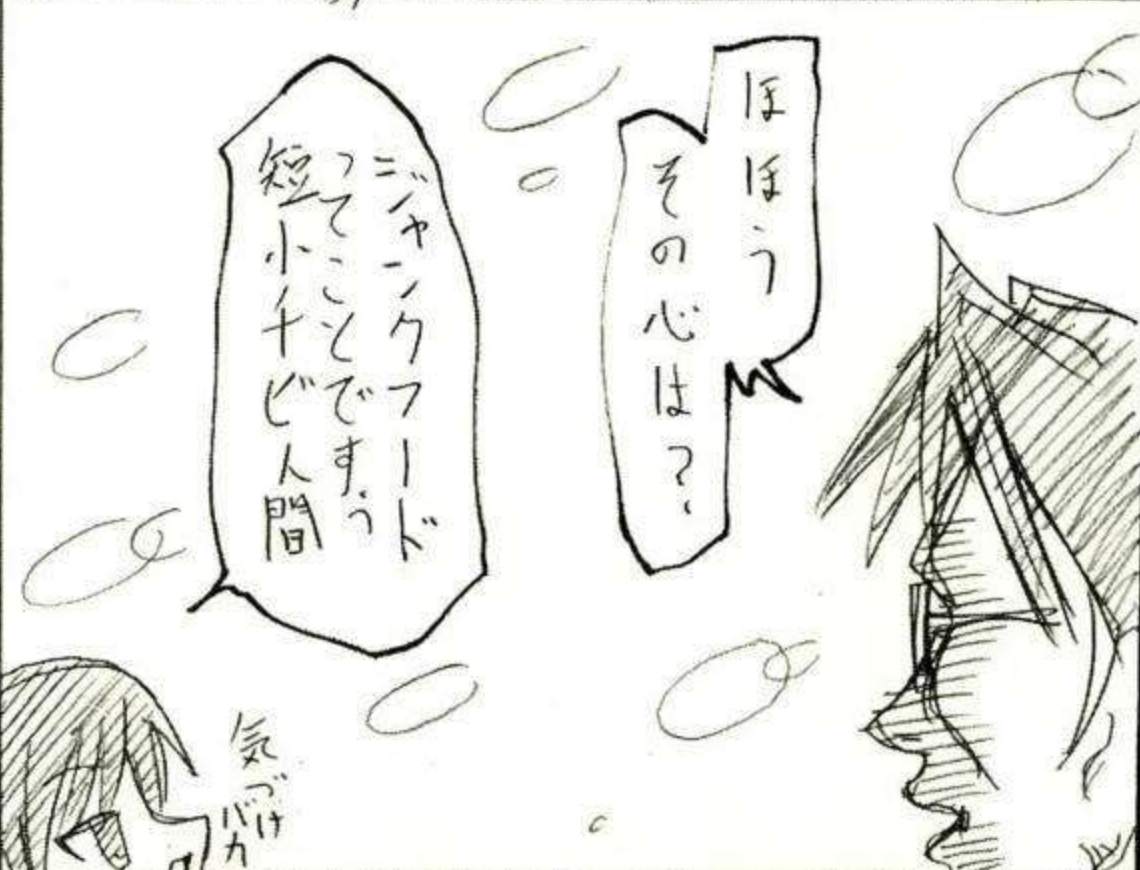 ほほう
その心は?、
ジャンクフード
ってことですぅ
短小チビ人間
気づけ
バカ